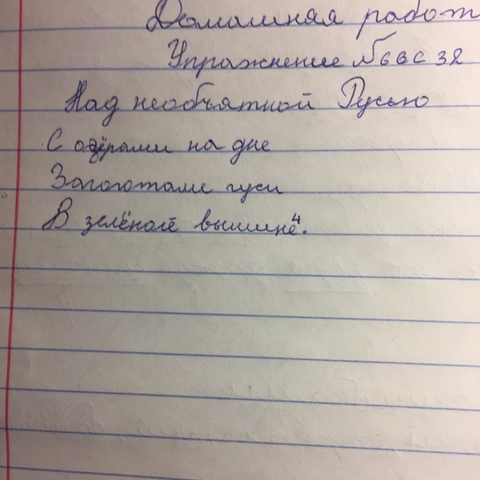 Домашняя работ
Упражнение №66 С 32
Над необъятной Русью
С озёрами на дне
Загоготали гуси
В зелёной вышине⁴.